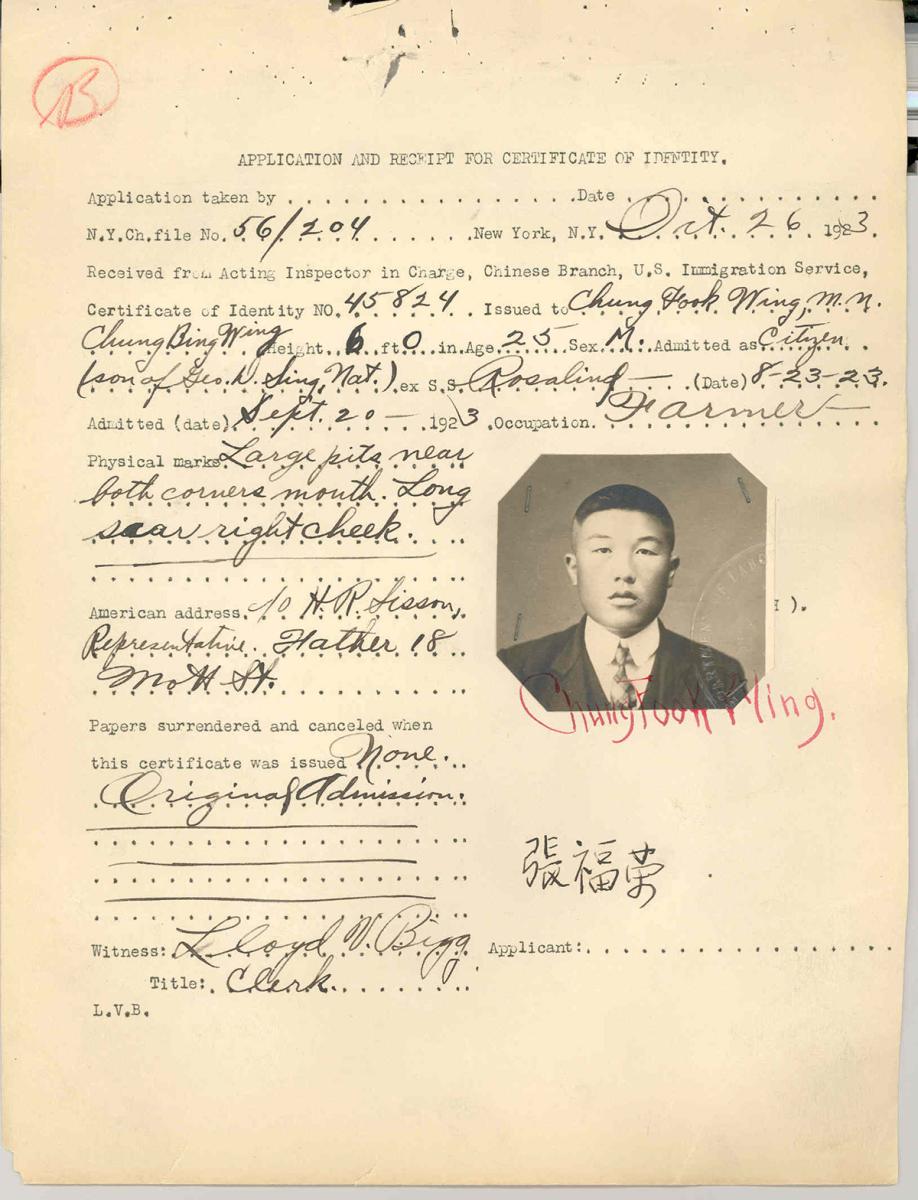 B
APPLICATION AND RECEIPT FOR CERTIFICATE OF IDENTITY.
Application taken by . . . . . . . . . . . . . . . . . Date . . . . . . . . . . . . . . .
N.Y.Ch.file No. 56/204 . . . . . . . . New York, N.Y. Oct. 26 1923.
Received from Acting Inspector in Charge, Chinese Branch, U.S. Immigration Service,
Certificate of Identity NO. 45824 . . Issued to Chung Fook Wing, M.N.
Chung Bing Wing Height 6 ft 0 in. Age 25 Sex M. Admitted as Citizen
(son of Geo. W. Sing, Nat.) ex S.S. Rosalind — (Date) 8-23-23.
Admitted (date) Sept. 20 — 1923. Occupation. Farmer —
Physical marks Large pits near
both corners mouth. Long
scar right cheek.
American address. c/o H.R. Sisson,
Representative. Father 18
Mott St.
H ).
DEPARTMENT OF LABOR
Chung Fook Wing.
Papers surrendered and canceled when
this certificate was issued None.
Original Admission.
張福荣
Witness: Lloyd V. Bigg Applicant: . . . . . . . . . . . . . . . . . . . .
Title: Clerk.
L.V.B.